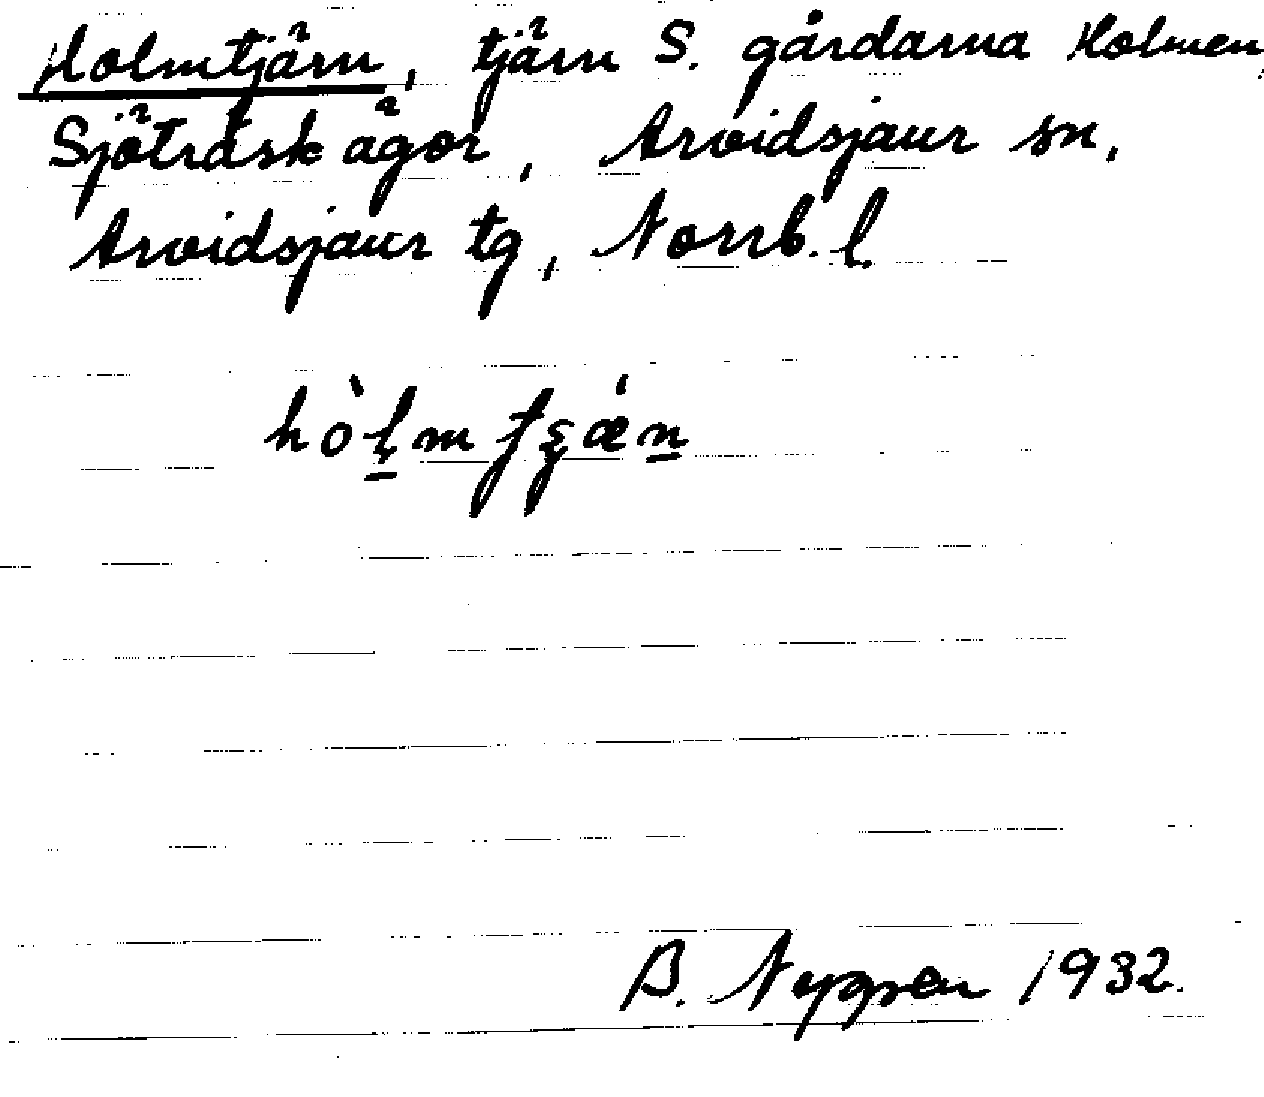 Holmtjärn, tjärn S. gårdarna Holmen,
Sjöträsk ägor, Arvidsjaur sn,
Arvidsjaur tg, Norrb. l.
B. Nygren 1932.